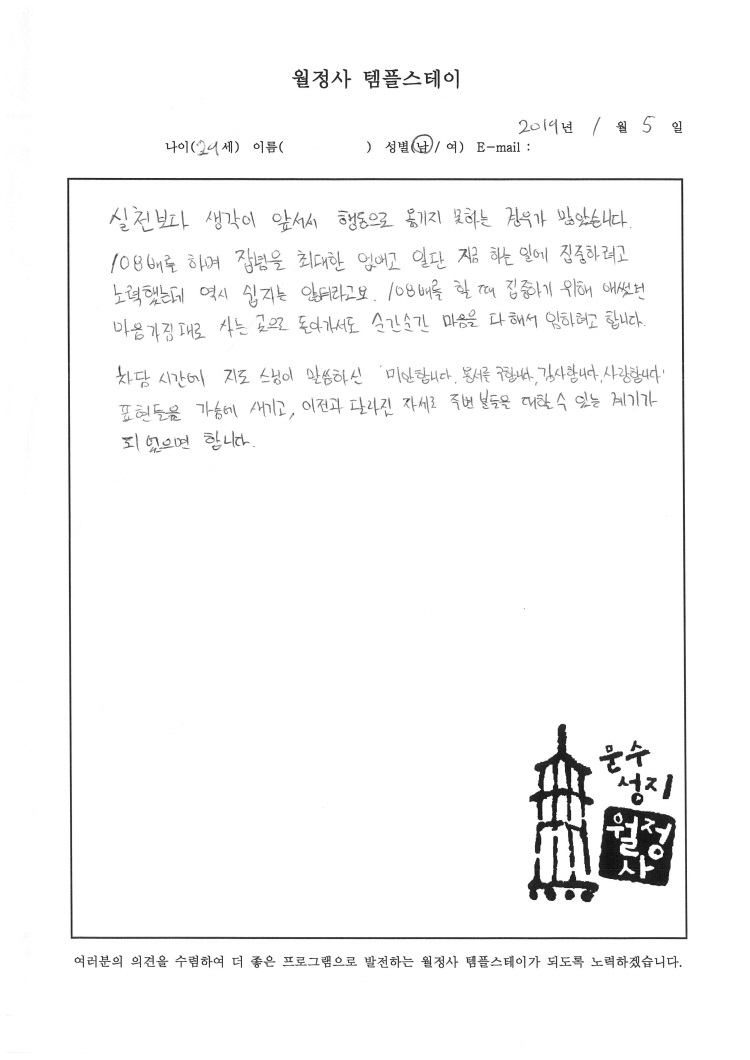 월정사 템플스테이
2019년 1월 5일
나이(29세) 이름( ) 성별(남/여) E-mail :
실천보다 생각이 앞서서 행동으로 옮기지 못하는 경우가 많았습니다.
108배를 하며 잡념을 최대한 없애고 일단 지금 하는 일에 집중하려고
노력했는데 역시 쉽지는 않더라고요. 108배를 할 때 집중하기 위해 애썼던
마음가짐대로 사는 곳으로 돌아가서도 순간순간 마음을 다해서 임하려고 합니다.
차담 시간에 지도 스님이 말씀하신 '미안합니다, 용서를 구합니다, 감사합니다, 사랑합니다'
표현들을 가슴에 새기고, 이전과 달라진 자세로 주변 분들을 대할 수 있는 계기가
되었으면 합니다.
문수
성지
월정
사
여러분의 의견을 수렴하여 더 좋은 프로그램으로 발전하는 월정사 템플스테이가 되도록 노력하겠습니다.